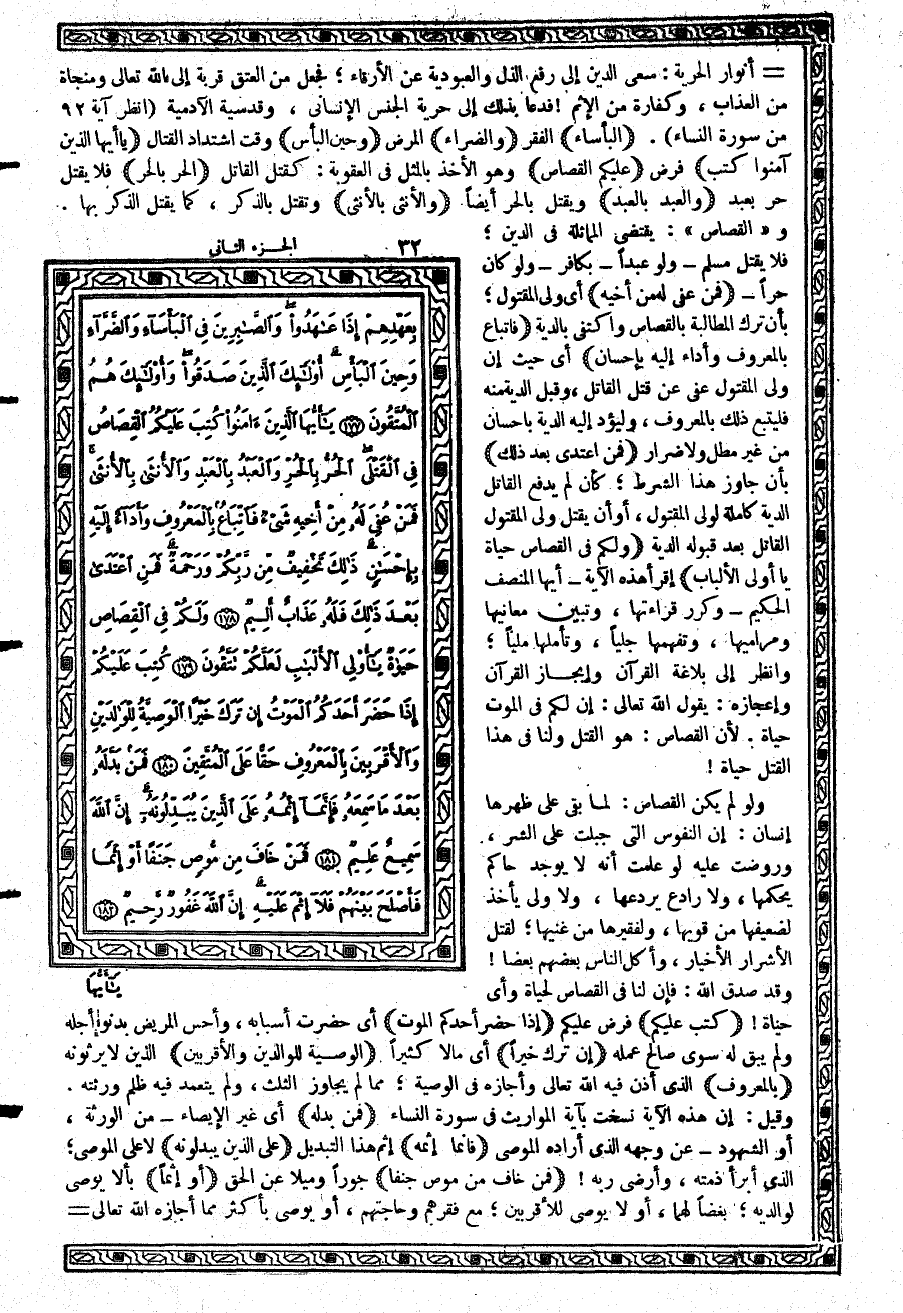 = أنوار الحرية : سعى الدين إلى رفع الذل والعبودية عن الأرقاء ؛ فجعل من العتق قربة إلى الله تعالى ومنجاة
من العذاب ، وكفارة من الإثم ! فدعا بذلك إلى حرية الجنس الإنسانى ، وقدسية الآدمية (انظر آية ٩٢
من سورة النساء) . (البأساء) الفقر (والضراء) المرض (وحين البأس) وقت اشتداد القتال (ياأيها الذين
آمنوا كتب) فرض (عليكم القصاص) وهو الأخذ بالمثل فى العقوبة : كقتل القاتل (الحر بالحر) فلا يقتل
حر بعبد (والعبد بالعبد) ويقتل بالحر أيضاً (والأنثى بالأنثى) وتقتل بالذكر ، كما يقتل الذكر بها .
و « القصاص » : يقتضى المماثلة فى الدين ؛
فلا يقتل مسلم – ولو عبداً – بكافر – ولو كان
حراً – (فمن عفى له من أخيه) أى ولى المقتول ؛
بأن ترك المطالبة بالقصاص واكتفى بالدية (فاتباع
بالمعروف وأداء إليه بإحسان) أى حيث إن
ولى المقتول عفى عن قتل القاتل ، وقبل الدية منه
فليتبع ذلك بالمعروف ، وليؤد إليه الدية بإحسان
من غير مطل ولا ضرار (فمن اعتدى بعد ذلك)
بأن جاوز هذا الشرط ؛ كأن لم يدفع القاتل
الدية كاملة لولى المقتول ، أو أن يقتل ولى المقتول
القاتل بعد قبوله الدية (ولكم فى القصاص حياة
يا أولى الألباب) إقرأ هذه الآية – أيها المنصف
الحكيم – وكرر قراءتها ، وتبين معانيها
ومراميها ، وتفهمها جلياً ، وتأملها ملياً ؛
وانظر إلى بلاغة القرآن وإيجاز القرآن
وإعجازه : يقول الله تعالى : إن لكم فى الموت
حياة . لأن القصاص : هو القتل ولنا فى هذا
القتل حياة !
ولو لم يكن القصاص : لما بقى على ظهرها
إنسان : إن النفوس التى جبلت على الشر ،
وروضت عليه لو علمت أنه لا يوجد حاكم
يحكمها ، ولا رادع يردعها ، ولا ولى يأخذ
لضعيفها من قويها ، ولفقيرها من غنيها ؛ لقتل
الأشرار الأخيار ، وأكل الناس بعضهم بعضا !
وقد صدق الله : فإن لنا فى القصاص لحياة وأى
الجزء الثانى ٣٢
بِعَهْدِهِمْ إِذَا عَٰهَدُوا۟ ۖ وَٱلصَّٰبِرِينَ فِى ٱلْبَأْسَآءِ وَٱلضَّرَّآءِ
وَحِينَ ٱلْبَأْسِ ۗ أُو۟لَٰٓئِكَ ٱلَّذِينَ صَدَقُوا۟ ۖ وَأُو۟لَٰٓئِكَ هُمُ
ٱلْمُتَّقُونَ ﴿١٧٧﴾ يَٰٓأَيُّهَا ٱلَّذِينَ ءَامَنُوا۟ كُتِبَ عَلَيْكُمُ ٱلْقِصَاصُ
فِى ٱلْقَتْلَى ۖ ٱلْحُرُّ بِٱلْحُرِّ وَٱلْعَبْدُ بِٱلْعَبْدِ وَٱلْأُنثَىٰ بِٱلْأُنثَىٰ ۚ
فَمَنْ عُفِىَ لَهُۥ مِنْ أَخِيهِ شَىْءٌ فَٱتِّبَاعٌۢ بِٱلْمَعْرُوفِ وَأَدَآءٌ إِلَيْهِ
بِإِحْسَٰنٍ ۗ ذَٰلِكَ تَخْفِيفٌ مِّن رَّبِّكُمْ وَرَحْمَةٌ ۗ فَمَنِ ٱعْتَدَىٰ
بَعْدَ ذَٰلِكَ فَلَهُۥ عَذَابٌ أَلِيمٌ ﴿١٧٨﴾ وَلَكُمْ فِى ٱلْقِصَاصِ
حَيَوٰةٌ يَٰٓأُو۟لِى ٱلْأَلْبَٰبِ لَعَلَّكُمْ تَتَّقُونَ ﴿١٧٩﴾ كُتِبَ عَلَيْكُمْ
إِذَا حَضَرَ أَحَدَكُمُ ٱلْمَوْتُ إِن تَرَكَ خَيْرًا ٱلْوَصِيَّةُ لِلْوَٰلِدَيْنِ
وَٱلْأَقْرَبِينَ بِٱلْمَعْرُوفِ حَقًّا عَلَى ٱلْمُتَّقِينَ ﴿١٨٠﴾ فَمَنۢ بَدَّلَهُۥ
بَعْدَ مَا سَمِعَهُۥ فَإِنَّمَآ إِثْمُهُۥ عَلَى ٱلَّذِينَ يُبَدِّلُونَهُۥٓ ۚ إِنَّ ٱللَّهَ
سَمِيعٌ عَلِيمٌ ﴿١٨١﴾ فَمَنْ خَافَ مِن مُّوصٍ جَنَفًا أَوْ إِثْمًا
فَأَصْلَحَ بَيْنَهُمْ فَلَآ إِثْمَ عَلَيْهِ ۚ إِنَّ ٱللَّهَ غَفُورٌ رَّحِيمٌ ﴿١٨٢﴾
يَٰٓأَيُّهَا
حياة ! (كتب عليكم) فرض عليكم (إذا حضر أحدكم الموت) أى حضرت أسبابه ، وأحس المريض بدنو أجله
ولم يبق له سوى صالح عمله (إن ترك خيراً) أى مالا كثيراً (الوصية للوالدين والأقربين) الذين لايرثونه
(بالمعروف) الذى أذن فيه الله تعالى وأجازه فى الوصية ؛ مما لم يجاوز الثلث ، ولم يتعمد فيه ظلم ورثته .
وقيل : إن هذه الآية نسخت بآية المواريث فى سورة النساء (فمن بدله) أى غير الإيصاء – من الورثة ،
أو الشهود – عن وجهه الذى أراده الموصى (فإنما إثمه) إثم هذا التبديل (على الذين يبدلونه) لاعلى الموصى ؛
الذي أبرأ ذمته ، وأرضى ربه ! (فمن خاف من موص جنفا) جوراً وميلا عن الحق (أو إثماً) بألا يوصى
لوالديه ؛ بغضاً لهما ، أو لا يوصى للأقربين ؛ مع فقرهم وحاجتهم ، أو يوصى بأكثر مما أجازه الله تعالى =